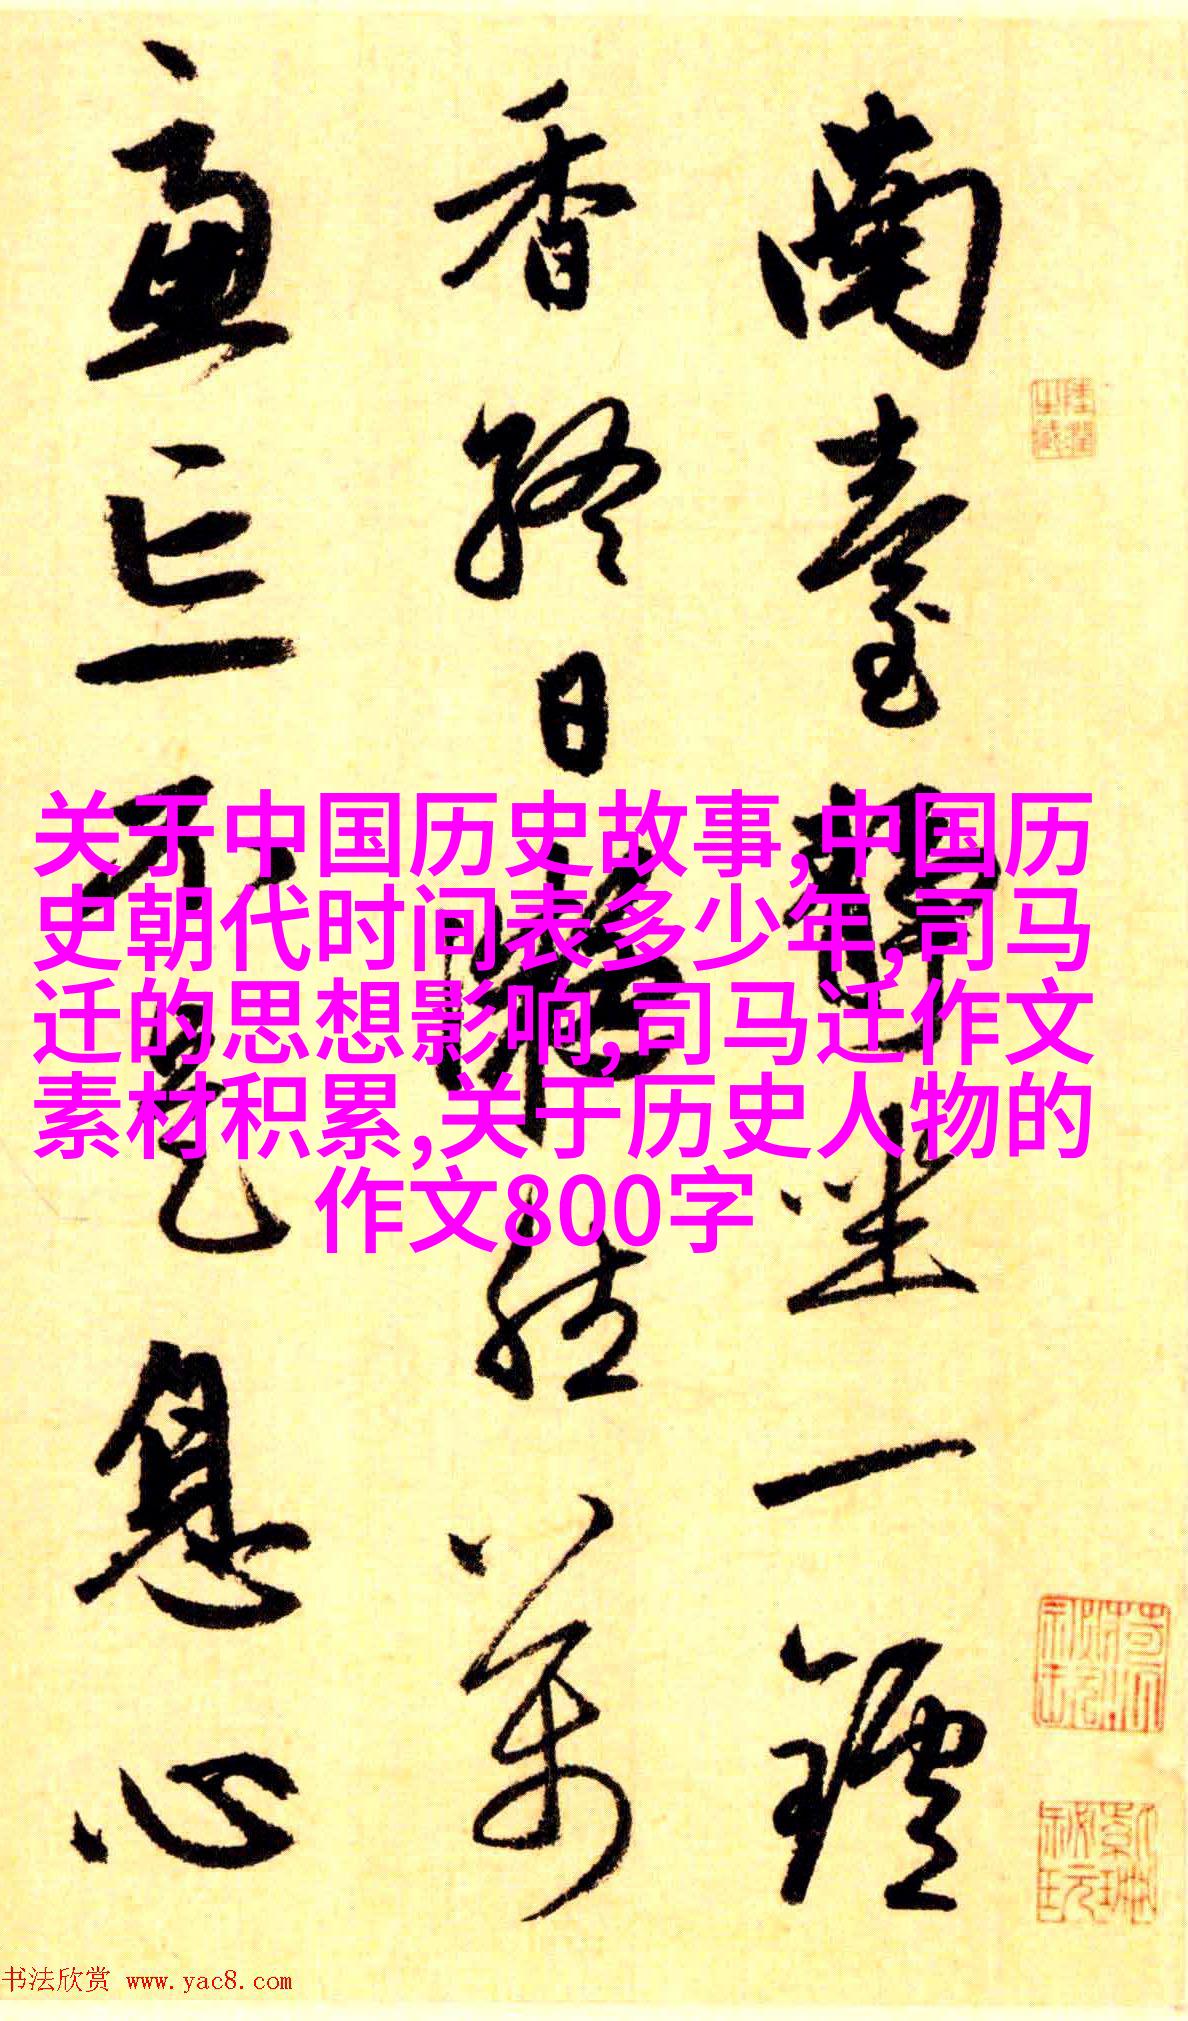 南臺静坐一鑪
香终日凝然万
虑亡不是息心
关于中国历史故事,中国历
史朝代时间表多少年,司马
迁的思想影响,司马迁作文
素材积累,关于历史人物的
作文800字
书法欣赏 www.yac8.com